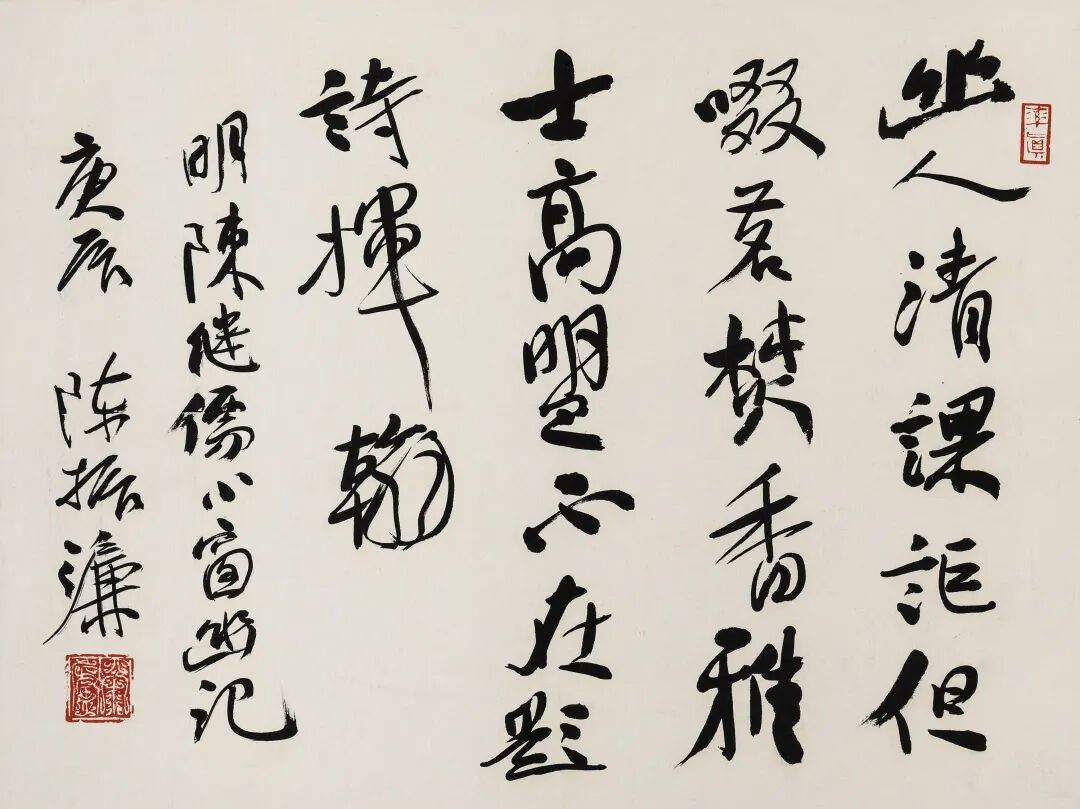 率真
幽人清課詎但
啜茗焚香雅
士高盟不在題
詩揮翰
明陳继儒小窗幽记
庚辰 陈振濂